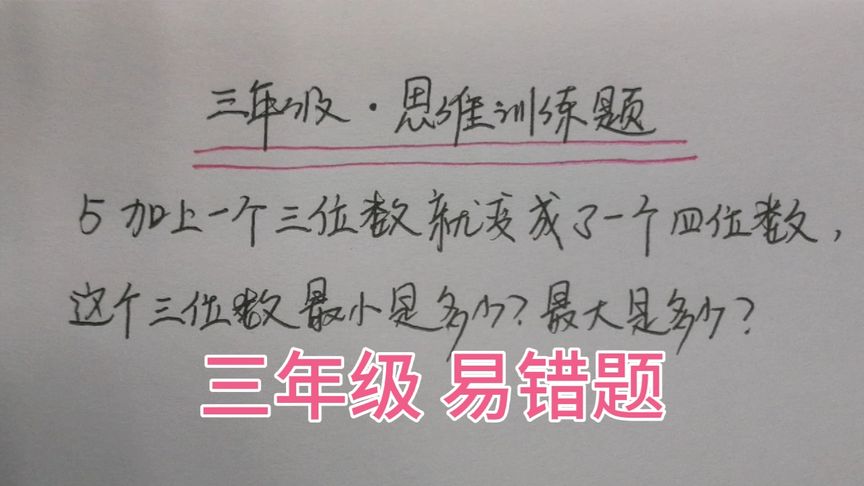 三年级·思维训练题
5加上一个三位数就变成了一个四位数,
这个三位数最小是多少?最大是多少?
三年级 易错题